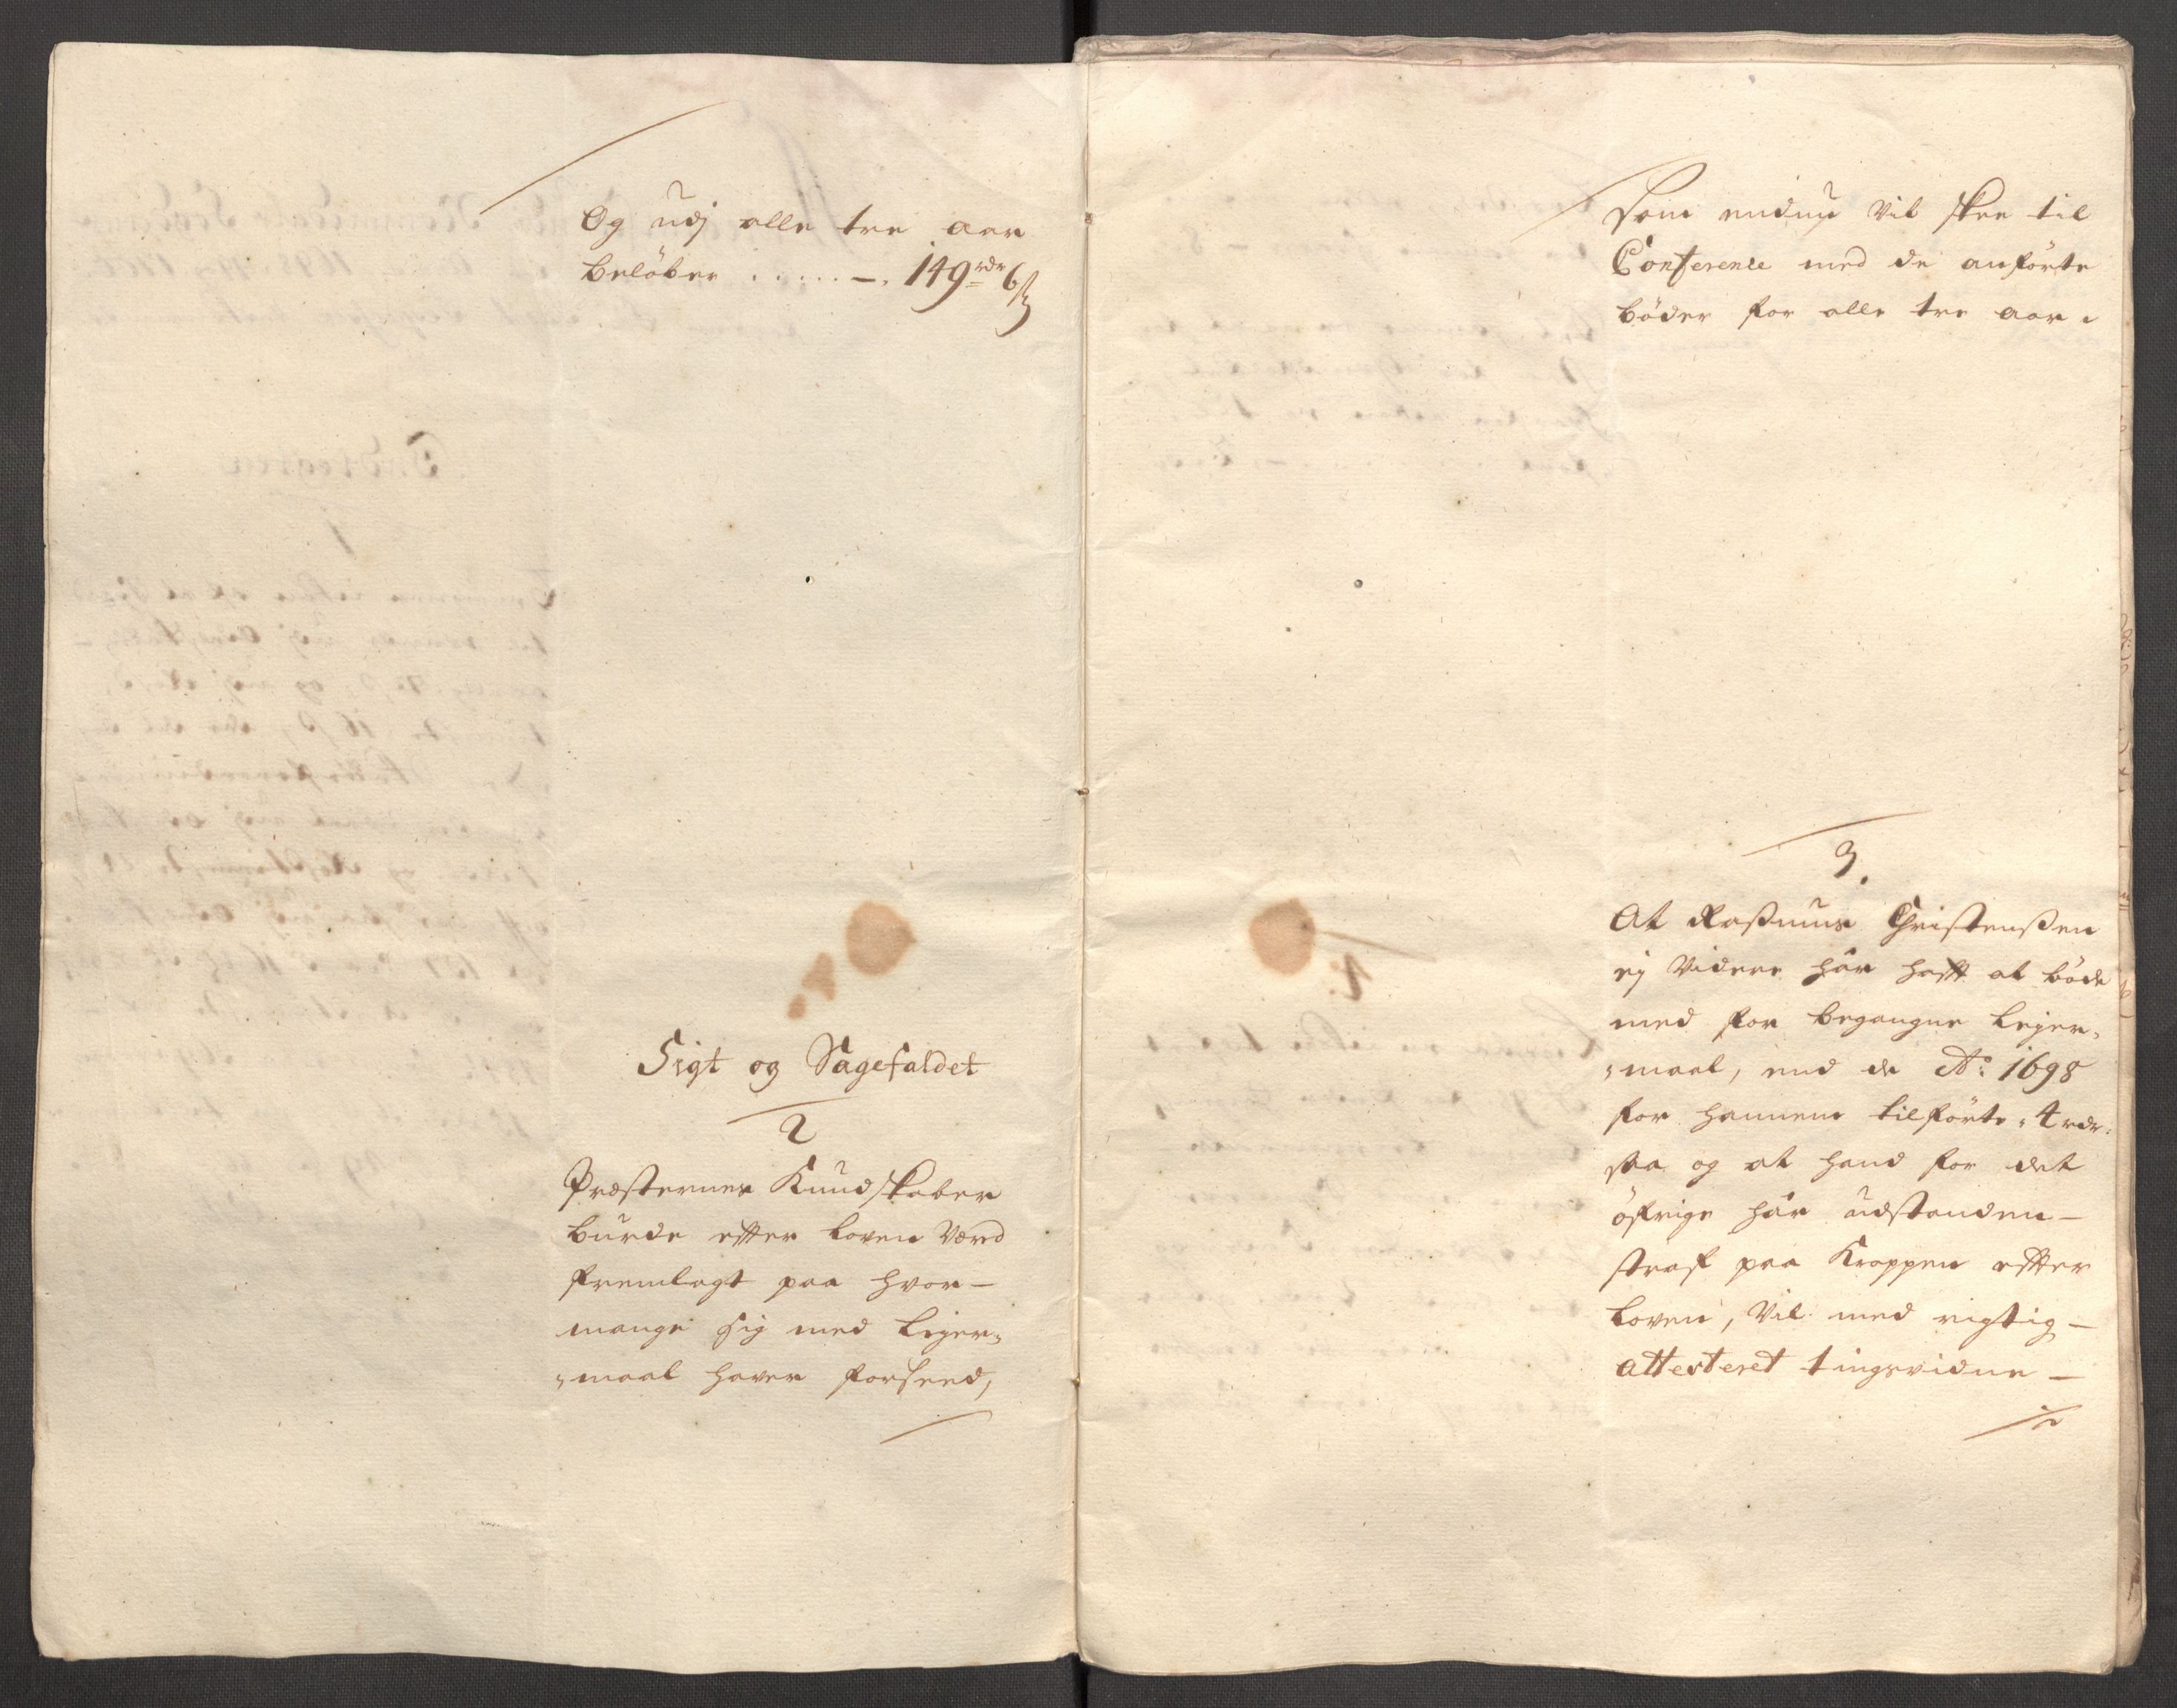 Og udj alle tre aar
beløber . . . . . . — . 149 rdr 6 ß
Sigt og Sagefaldet
2
Præsternes Kundskaber
burde efter loven værd
fremlagt paa hvor-
mange sig med leger-
maal haver forseed,
Som endnu vil skee til
Conference med de anførte
bøder for alle tre aar.
3.
At Rasmus Christensen
ej videre hâr hafft at bøde
med for begangne leger-
maal, end de Aº: 1698
for hannem tilførte 4 rdr.
saa og at hand for det
øfrige hâr udstanden-
straf paa Kroppen effter
loven, vil med rigtig-
attesteret tingsvidne-